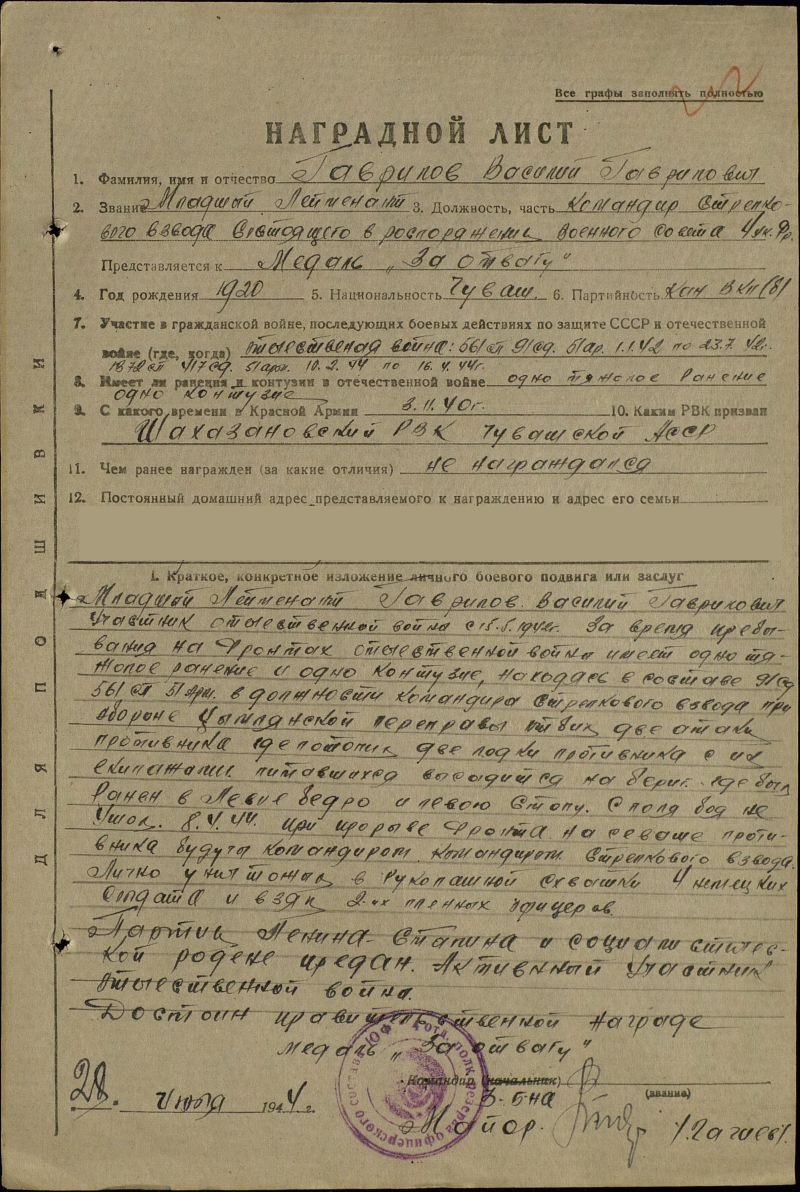 Все графы заполнять полностью
НАГРАДНОЙ ЛИСТ
1. Фамилия, имя и отчество Гаврилов Василий Гаврилович
2. Звание Младший Лейтенант 3. Должность, часть Командир Стрелко-
вого взвода Состоящего в роспоряжении Военного совета 4 Ук. Фр.
Представляется к Медаль „За отвагу"
4. Год рождения 1920 5. Национальность Чуваш. 6. Партийность Кан ВКП(б)
7. Участие в гражданской войне, последующих боевых действиях по защите СССР и отечественной
войне (где, когда) отечественая война: 561 сп 91 сд. 51 ар. 1.1.42 по 23.7.42г.
1372 сп 417 сд. 51 арм. 10.2.44 по 16.4.44г.
8. Имеет ли ранения и контузии в отечественной войне одно тяжолое ранение
одно контузие
9. С какого времени в Красной Армии 3.11.40г. 10. Каким РВК призван
Шахазановский РВК Чувашской АССР
11. Чем ранее награжден (за какие отличия) не награждался
12. Постоянный домашний адрес представляемого к награждению и адрес его семьи
ДЛЯ ПОДШИВКИ
1. Краткое, конкретное изложение личного боевого подвига или заслуг
Младший Лейтенант Гаврилов Василий Гаврилович
Участник отечественной война с 15.5.1942г. За время пребы-
вания на Фронтах отечественной война имеет одно тя-
жолое ранение и одно контузие, находясь в составе 91 сд
561 сп 51 Арм. в должности командира Стрелкового взвода при
обороне Цымлянской переправы отбил две атаки
противника где потопил две лодки противника с их
екипажами питавшихся высадится на берег. где был
Ранен в Левие бедро и левою Стопу. С поля боя не
Ушол. 8.4.44. при прорыве Фронта на севаше проти-
вника будучи командиром командиром Стрелкового взвода.
Лично уничтожил в Рукопашной схватки 4 немецких
Солдата и взял 2-их пленных офицеров.
Партии Ленина-Сталина и социалистичес-
кой родене предан. Активный Участник
Отечественной война.
Достоин правительственной награде
медаль „За отвагу"
Командир (начальник)
3-б-на (звание)
28. Июля 1944 г.
Майор. /Гагиев/
ЮФ Отд. полк резерва офицерского состава